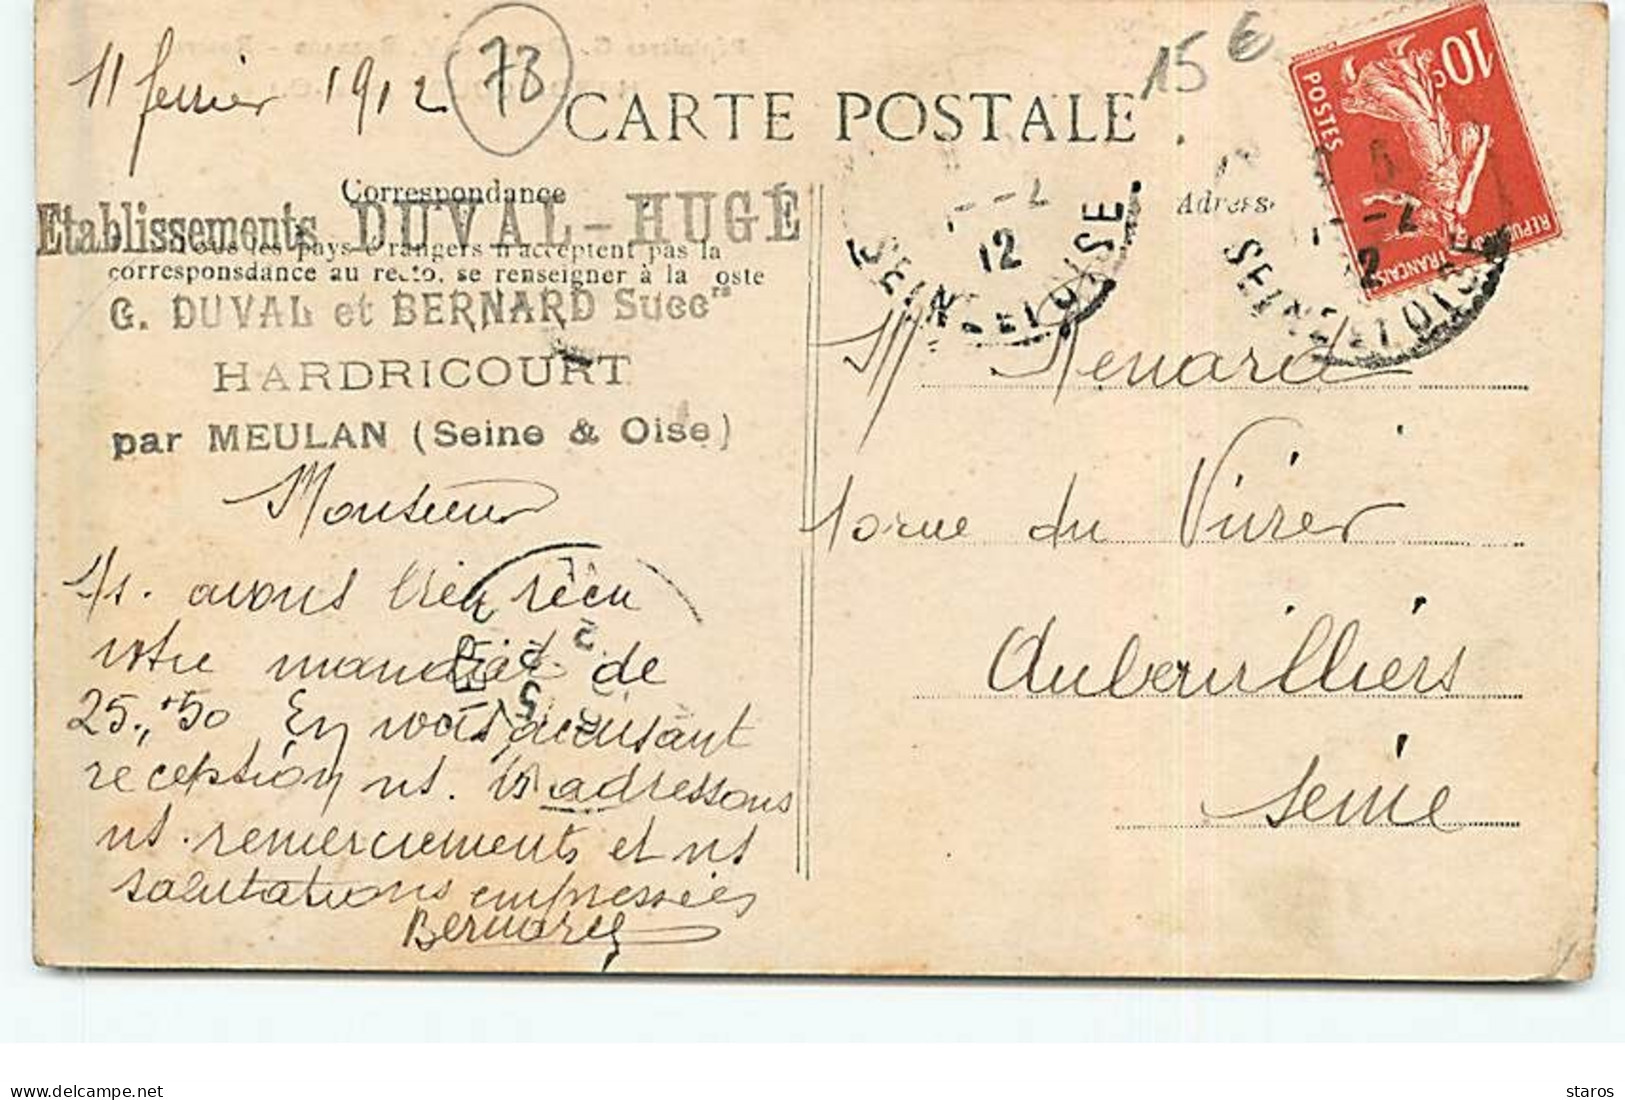 11 fevrier 1912
78
15 €
CARTE POSTALE
10c
POSTES
REPUBLIQUE FRANÇAISE
Correspondance
Adresse
Etablissements DUVAL-HUGÉ
Tous les pays étrangers n'acceptent pas la
corresponsdance au recto, se renseigner à la poste
G. DUVAL et BERNARD Succrs
HARDRICOURT
par MEULAN (Seine & Oise)
12
SEINE-ET-OISE
12
SEINE-ET-OISE
Monsieur
Ns. avons bien recu
votre mandat de
25.,50 En vous accusant
reception ns. vs adressons
ns. remerciements et ns
salutations empressées
Bernard
Mr Renard
10 rue du Vivier
Aubervilliers
Seine
staros
delcampe.net